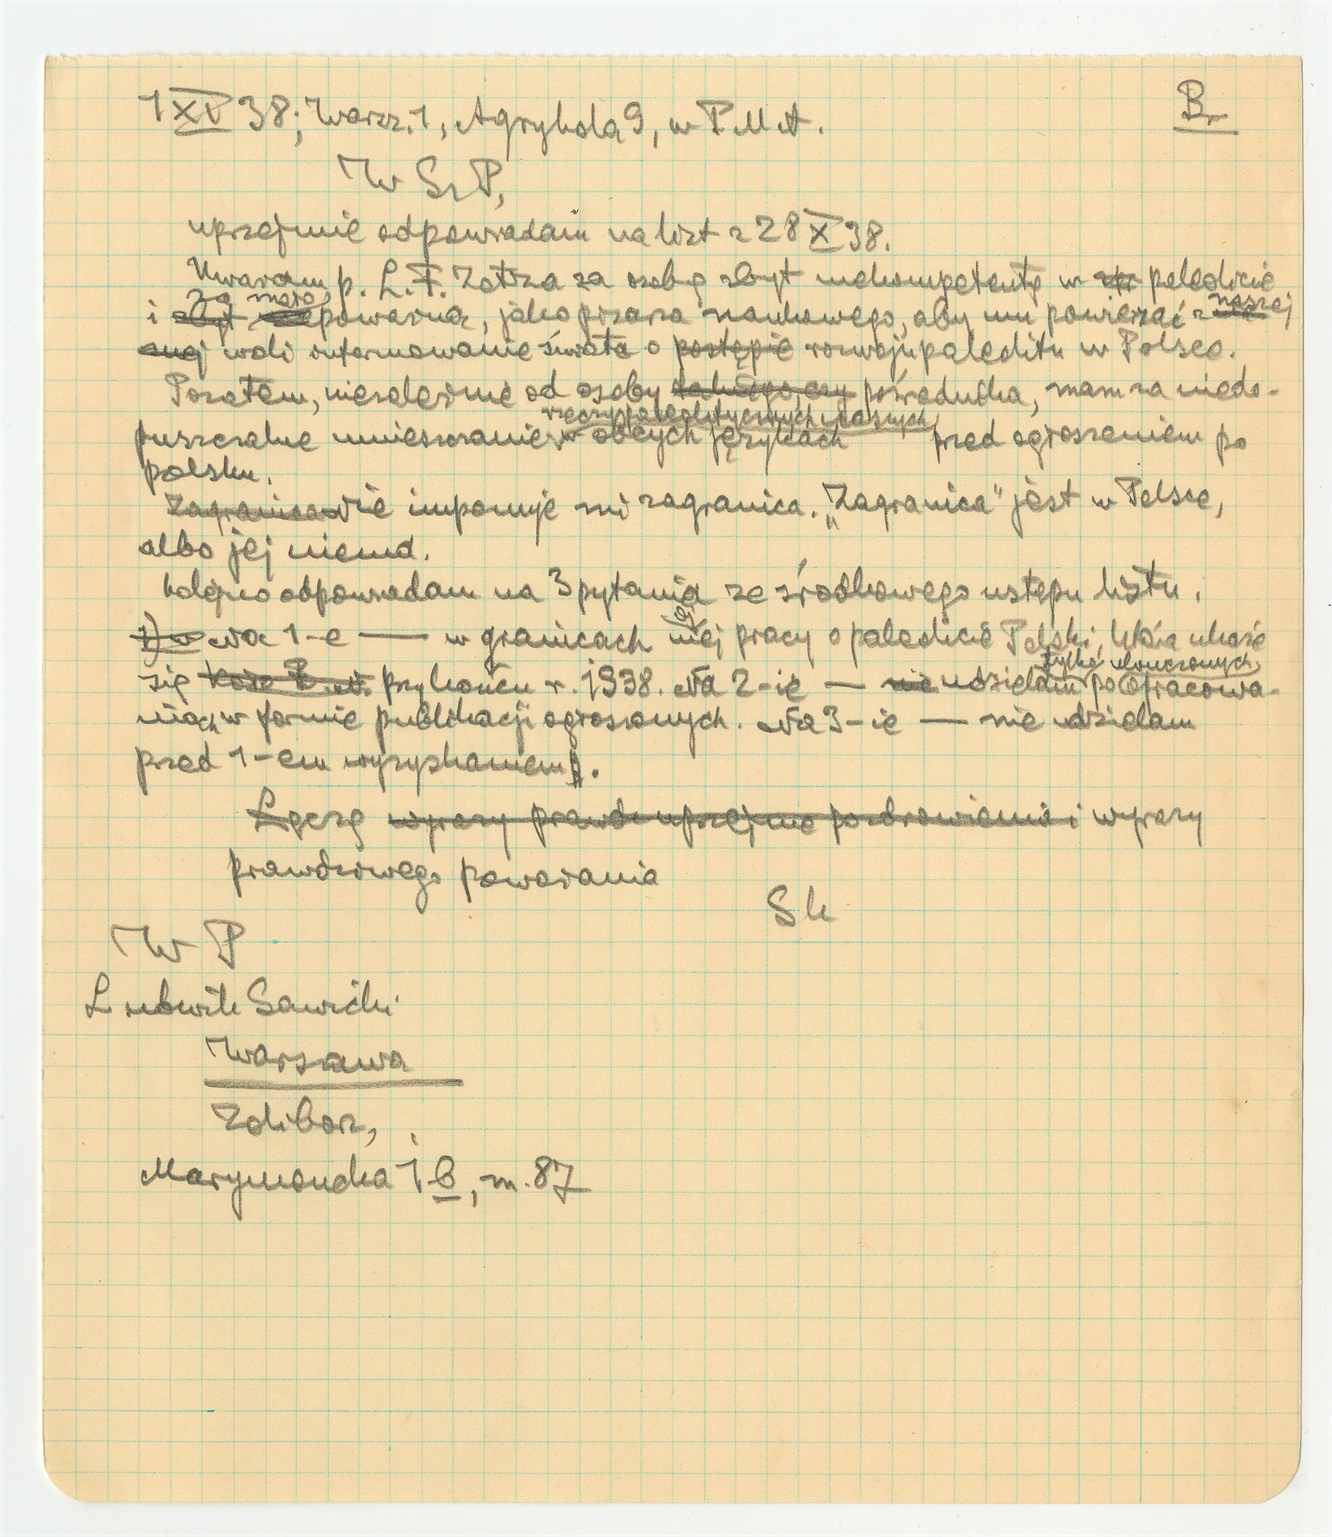 1 XI 38; Warsz. 1, Agrykola 9, w P.M.A.
Br
W Sz P,
uprzejmie odpowiadam na list z 28 X 38.
Uważam p. L. F. Zotza za osobę zbyt niekompetentną w paleolicie
za mało naszej
i zbyt poważną, jako pisarza naukowego, aby mu powierzać z
woli informowanie świata o postępie rozwoju paleolitu w Polsce.
Pozatem, niezależnie od osoby pośrednika, mam za niedo-
rzeczy paleolitycznych naszych
puszczalne umieszczanie w obcych językach przed ogłoszeniem po
polsku.
Zagranica nie imponuje mi zagranica. "Zagranica" jest w Polsce,
albo jej niema.
Kolejno odpowiadam na 3 pytania ze środkowego ustępu listu.
1) Na 1-e — w granicach mej pracy o paleolicie Polski, która ukaże
tylko ukończonych,
się przy końcu r. 1938. Na 2-ie — nie udzielam po opracowa-
niach, w formie publikacji ogłoszonych. Na 3-ie — nie udzielam
przed 1-em wyzyskaniem.
Łączę wyrazy prawdz uprzejme pozdrowienia i wyrazy
prawdziwego poważania
Sk
W P
Ludwik Sawicki
Warszawa
Zdobycz,
Marymoncka 1 b, m. 87